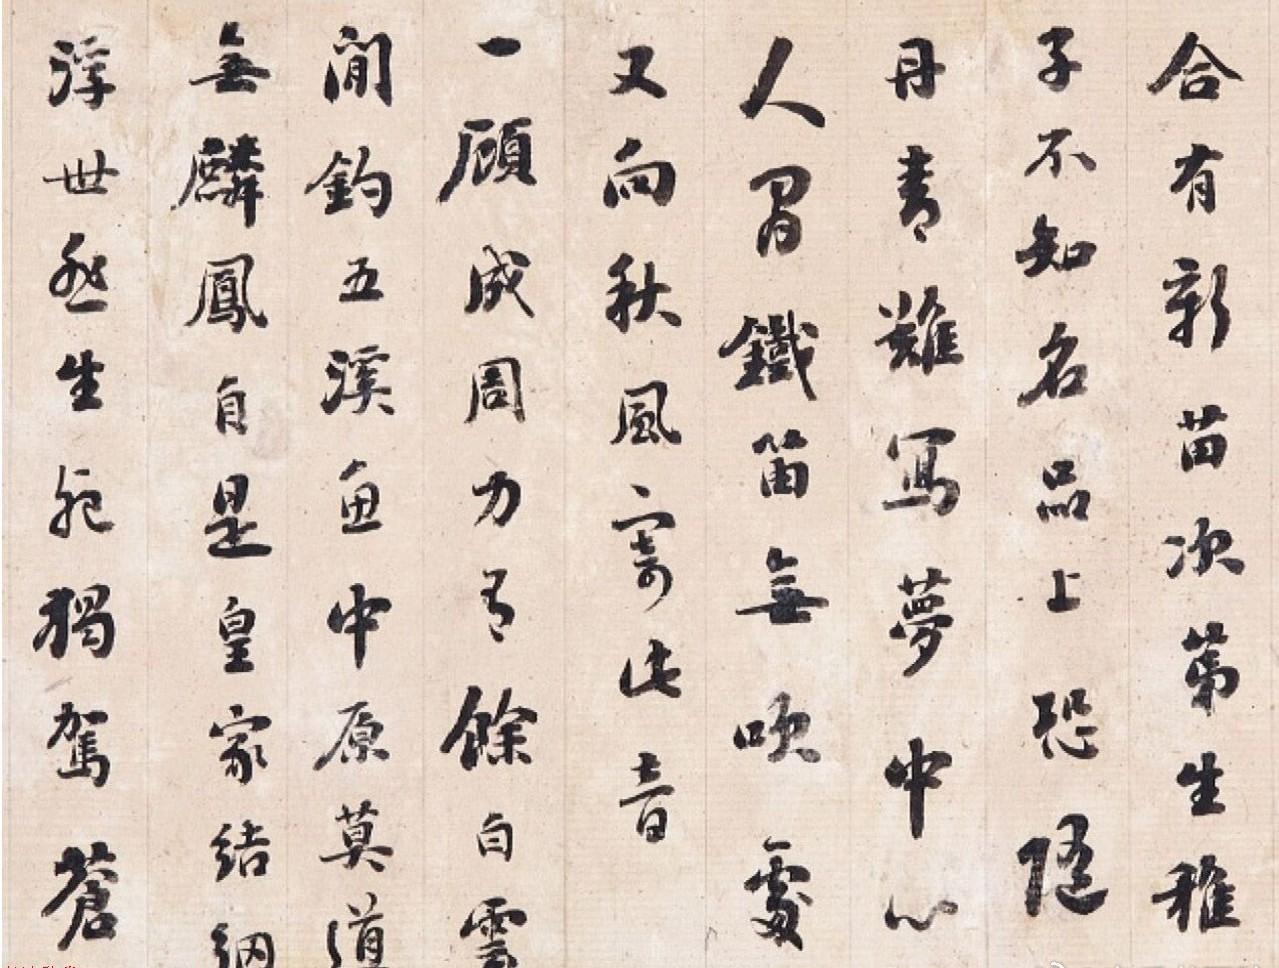 合有新苗次第生稚
子不知名品上恐隨
丹青難寫夢中心
人間鐵笛無吹處
又向秋風寄此音
一顧成周力有餘白雲
閒釣五溪魚中原莫道
無麟鳳自是皇家結網
浮世忽生死獨駕蒼